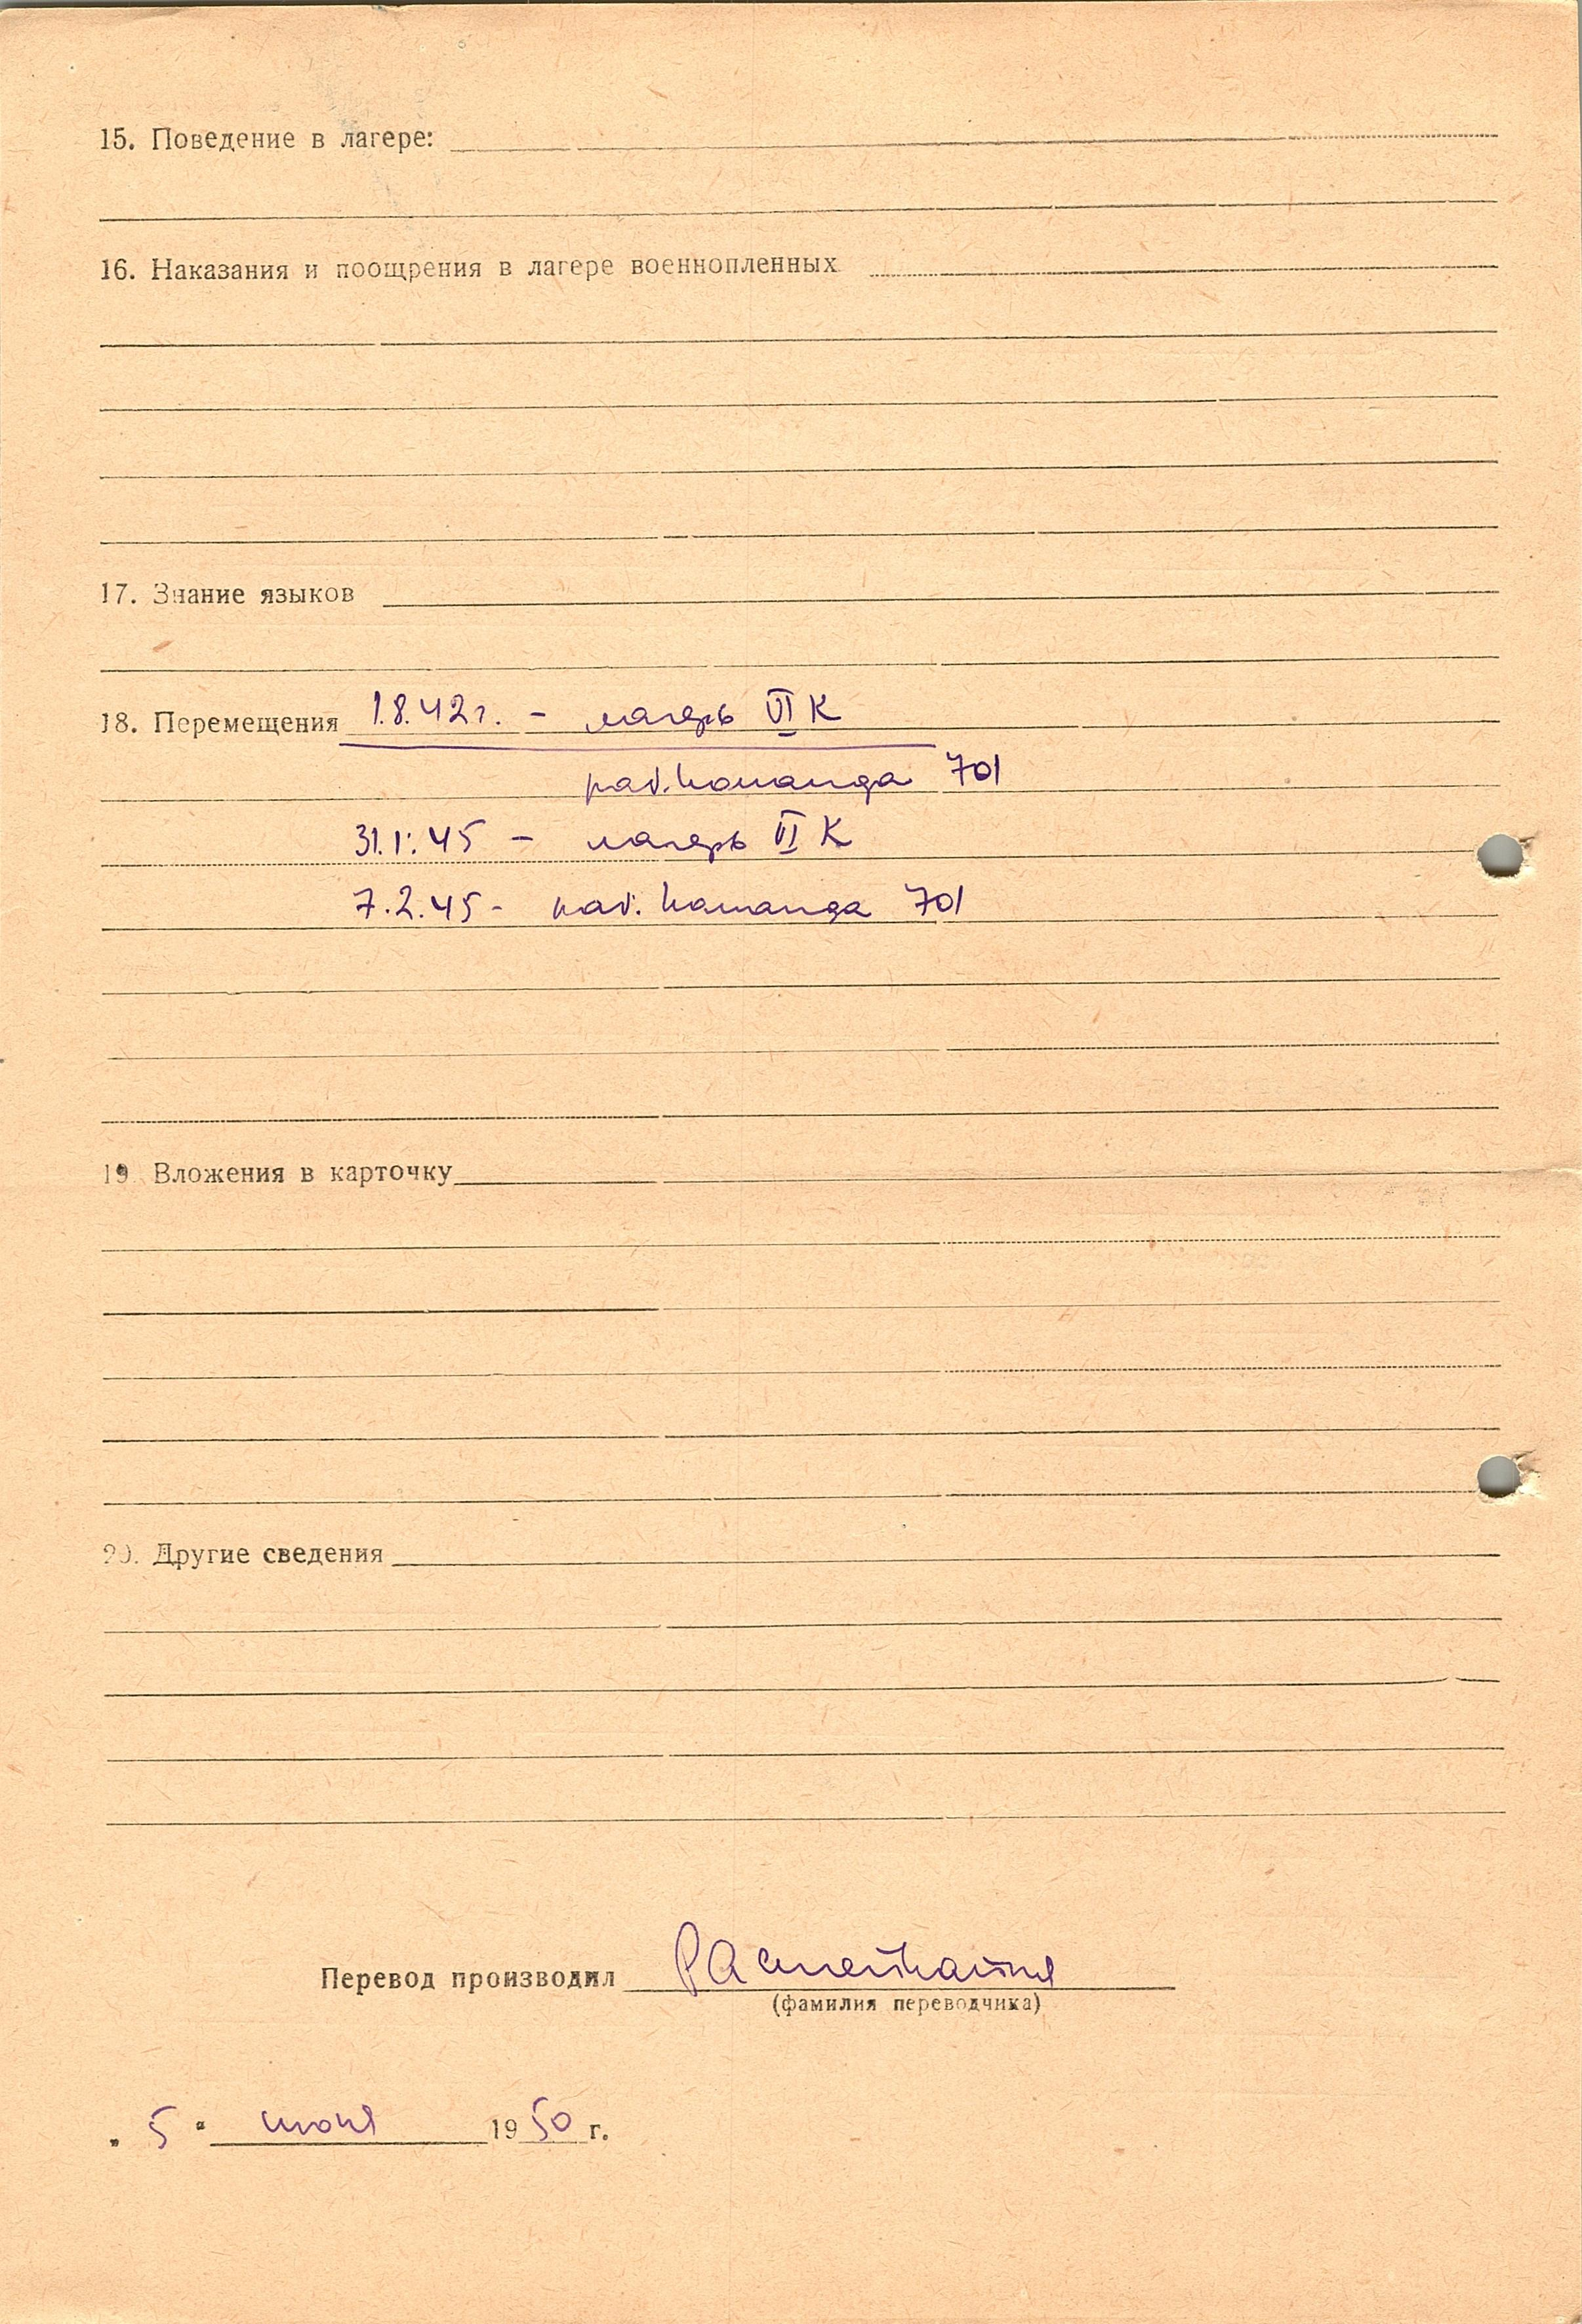 15. Поведение в лагере:
16. Наказания и поощрения в лагере военнопленных
17. Знание языков
18. Перемещения 1.8.42г. - лагерь VI К
раб. команда 701
31.1.45 - лагерь VI К
7.2.45 - раб. команда 701
19. Вложения в карточку
20. Другие сведения
Перевод производил
(фамилия переводчика)
„ 5 " июня 1950 г.